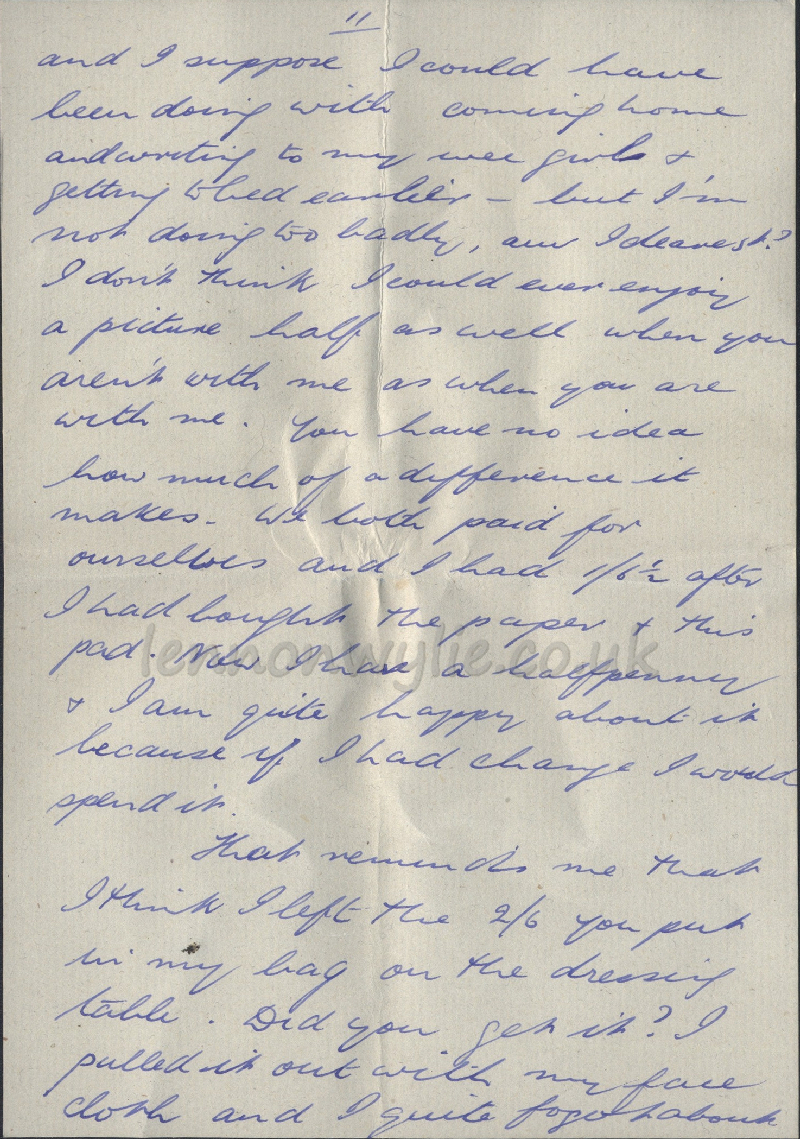 11
and I suppose I could have
been doing with coming home
and writing to my wee girl &
getting to bed earlier - but I'm
not doing too badly, am I dearest?
I don't think I could ever enjoy
a picture half as well when you
aren't with me as when you are
with me. You have no idea
how much of a difference it
makes. We both paid for
ourselves and I had 1/6½ after
I had bought the paper & this
pad. Now I have a halfpenny
& I am quite happy about it
because if I had change I would
spend it.
That reminds me that
I think I left the 2/6 you put
in my bag on the dressing
table. Did you get it? I
pulled it out with my face
cloth and I quite fogot about
lennonwylie.co.uk